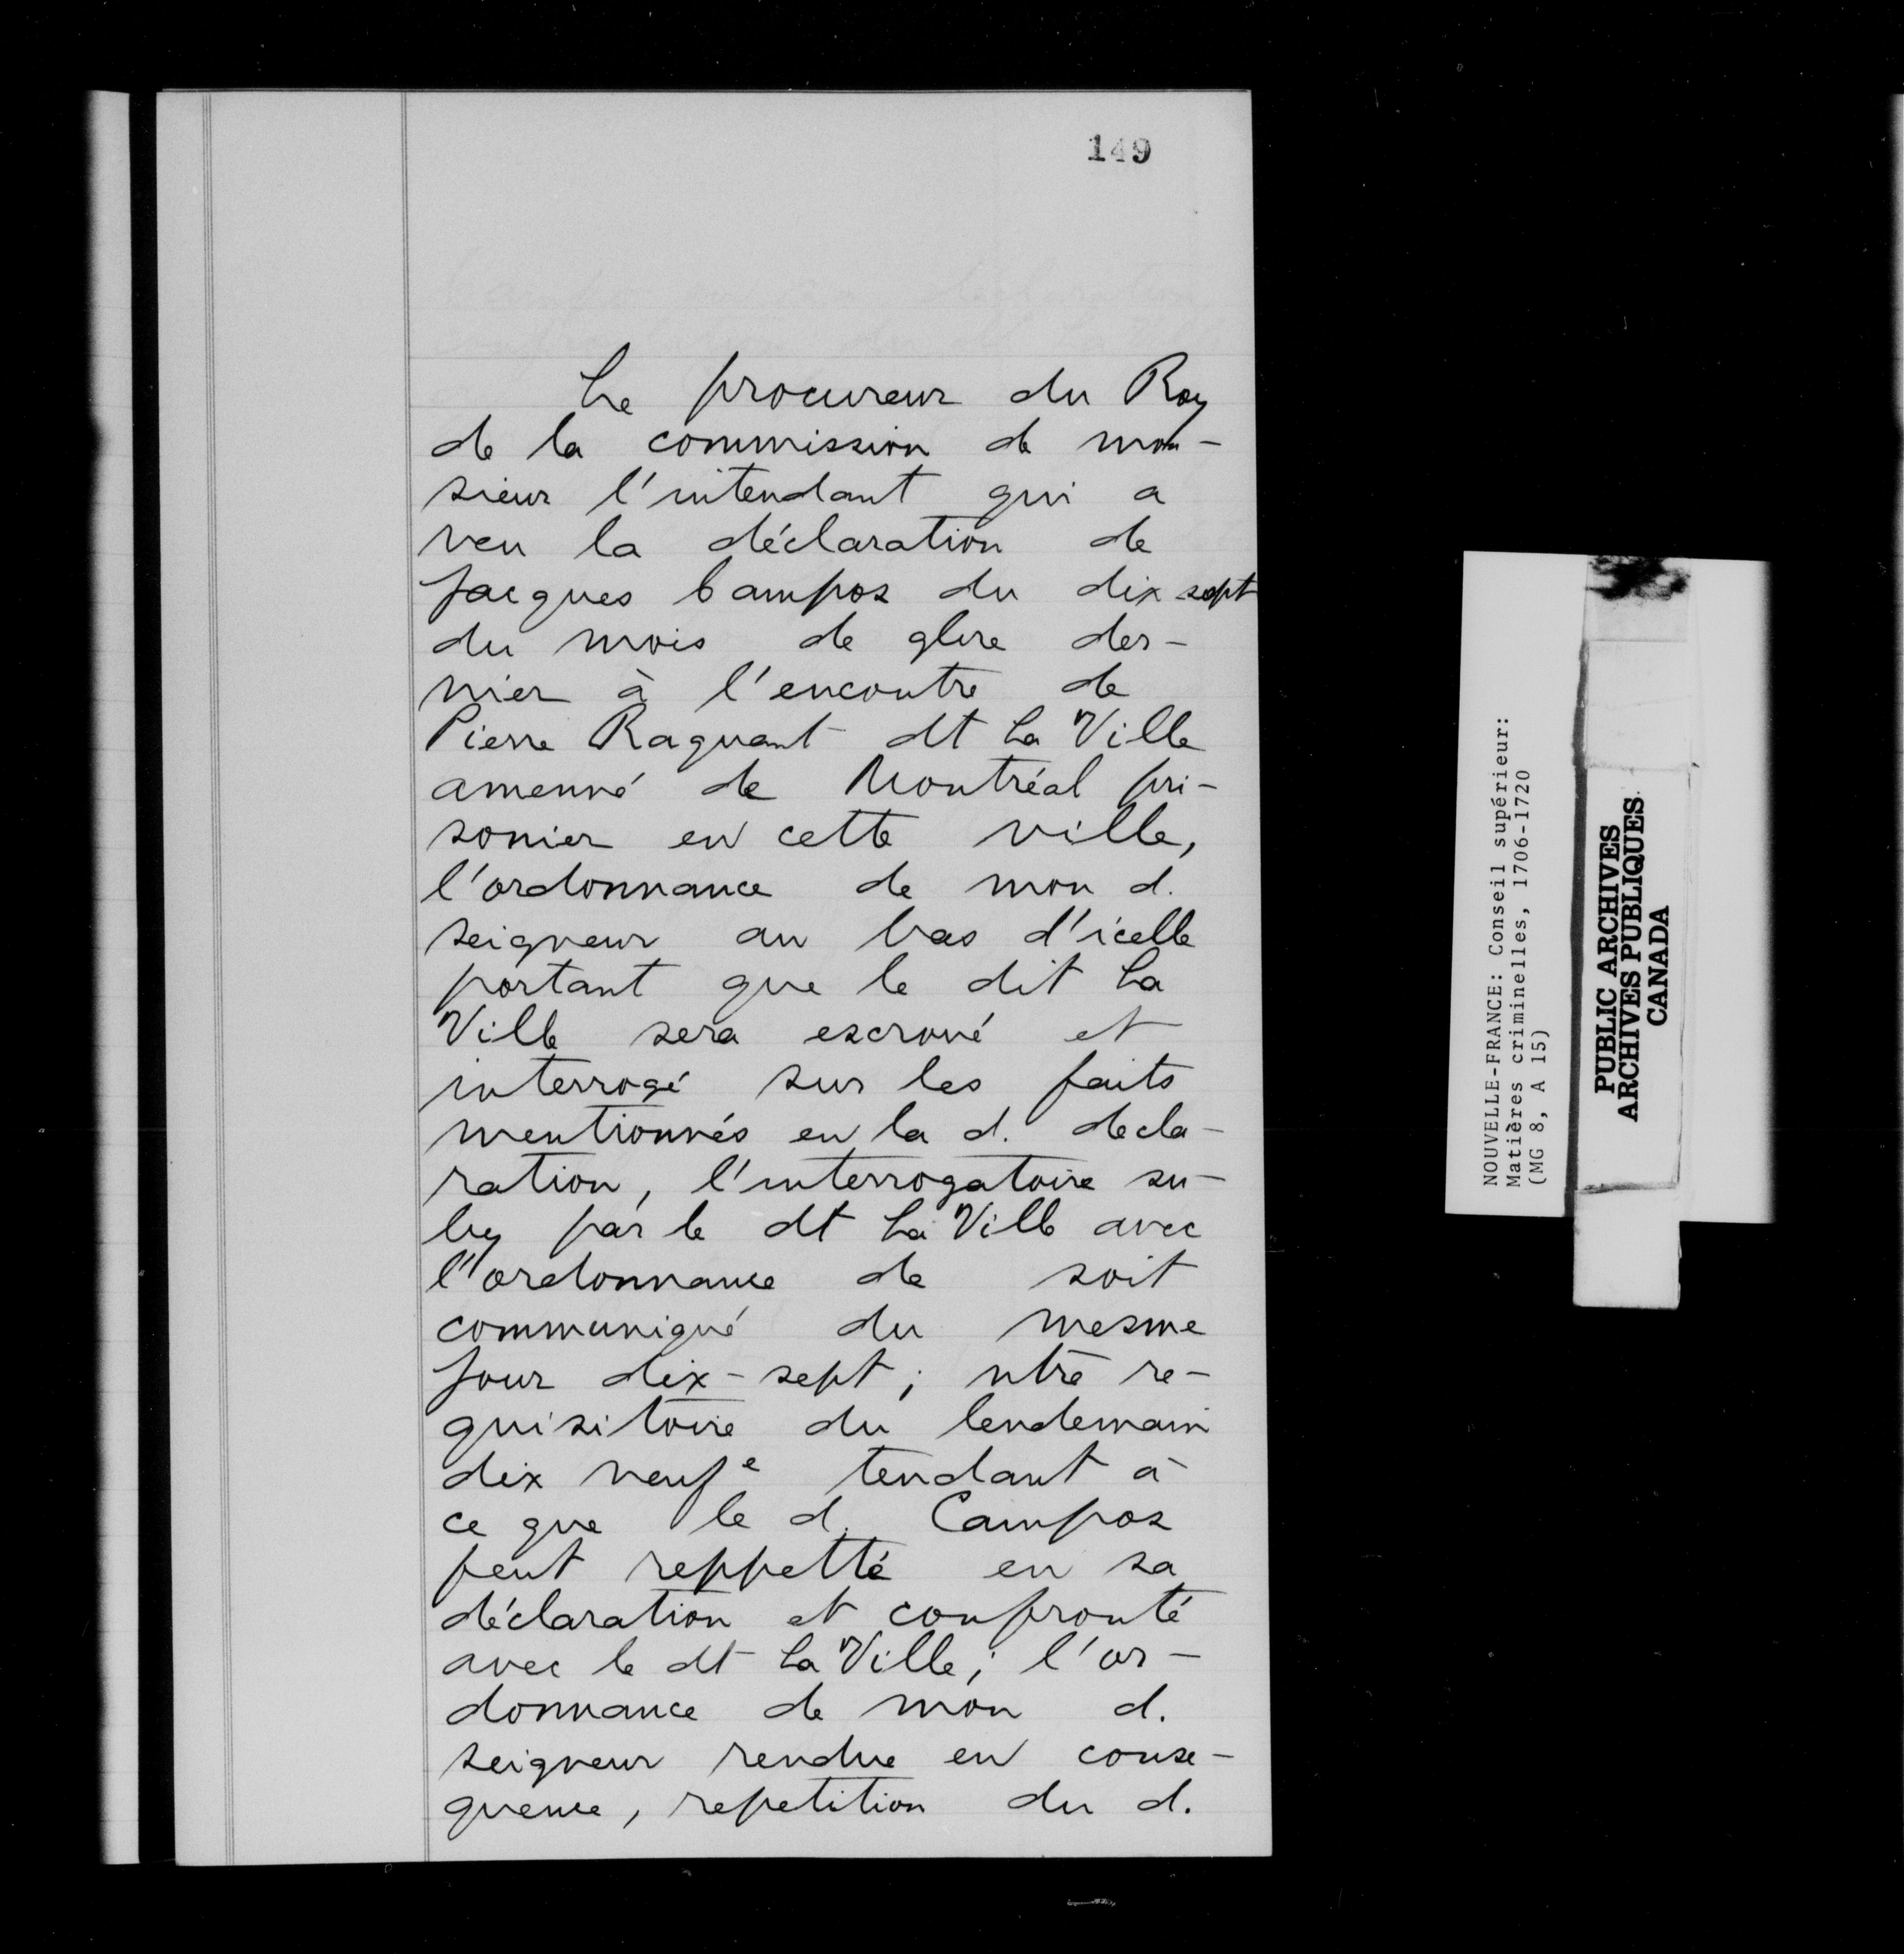 149
Le procureur du Roy
de la commission de mon-
sieur l'intendant qui a
veu la déclaration de
Jacques Campos du dix sept
du mois de 9bre der-
nier à l'encontre de
Pierre Raguant dt La Ville
amenné de Montréal pri-
sonier en cette ville,
l'ordonnance de mon d.
seigneur au bas d'icelle
portant que le dit La
Ville sera escroué et
interrogé sur les faits
mentionnés en la d. decla-
ration, l'interrogatoire su-
by par le dt La Ville avec
l'ordonnance de soit
communiqué du mesme
jour dix-sept; ntre re-
quisitoire du lendemain
dix neufe tendant à
ce que le d. Campos
feut reppetté en sa
déclaration et confronté
avec le dt La Ville; l'or-
donnance de mon d.
seigneur rendue en conse-
quence, repetition du d.
NOUVELLE-FRANCE: Conseil supérieur:
Matières criminelles, 1706-1720
(MG 8, A 15)
PUBLIC ARCHIVES
ARCHIVES PUBLIQUES
CANADA